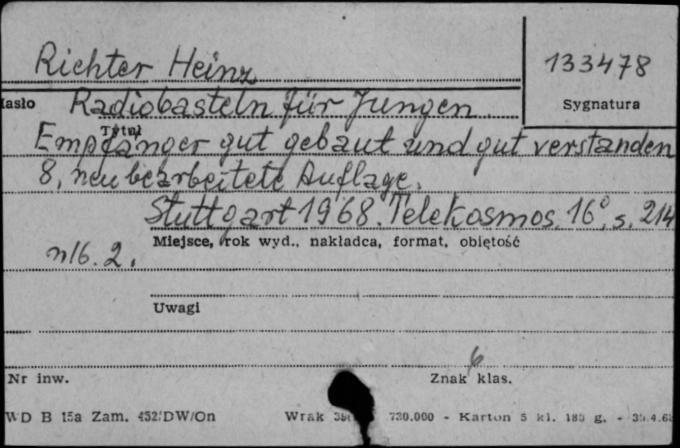 Richter Heinz
133478
Hasło
Sygnatura
Radiobasteln für Jungen
Tytuł
Empfänger gut gebaut und gut verstanden
8, neu bearbeitete Auflage.
Stuttgart 1968. Telekosmos. 16°, s. 214
Miejsce, rok wyd., nakładca, format, objętość
Uwagi
6
Nr inw.
Znak klas.
WD B 15a Zam. 452/DW/On
Wrak 730.000 - Karton 5 kl. 180 g.